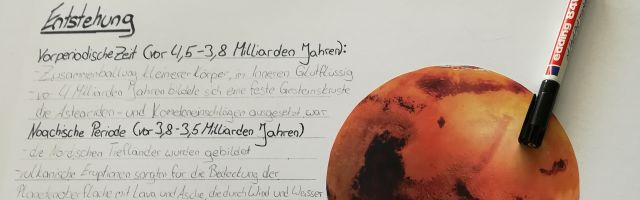 Entstehung
Vorperiodische Zeit (vor 4,5-3,8 Milliarden Jahren):
-Zusammenballung kleinerer Körper, im Inneren Glutflüssig
-vor 4 Milliarden Jahren bildete sich eine feste Gesteinskruste
die Asteroiden- und Kometeneinschlägen ausgesetzt war
Noachsche Periode (vor 3,8-3,5 Milliarden Jahren)
-die Nordischen Tiefländer wurden gebildet
-vulkanische Eruptionen sorgten für die Bedeckung der
Planetenoberfläche mit Lava und Asche, die durch Wind und Wasser
edding 840